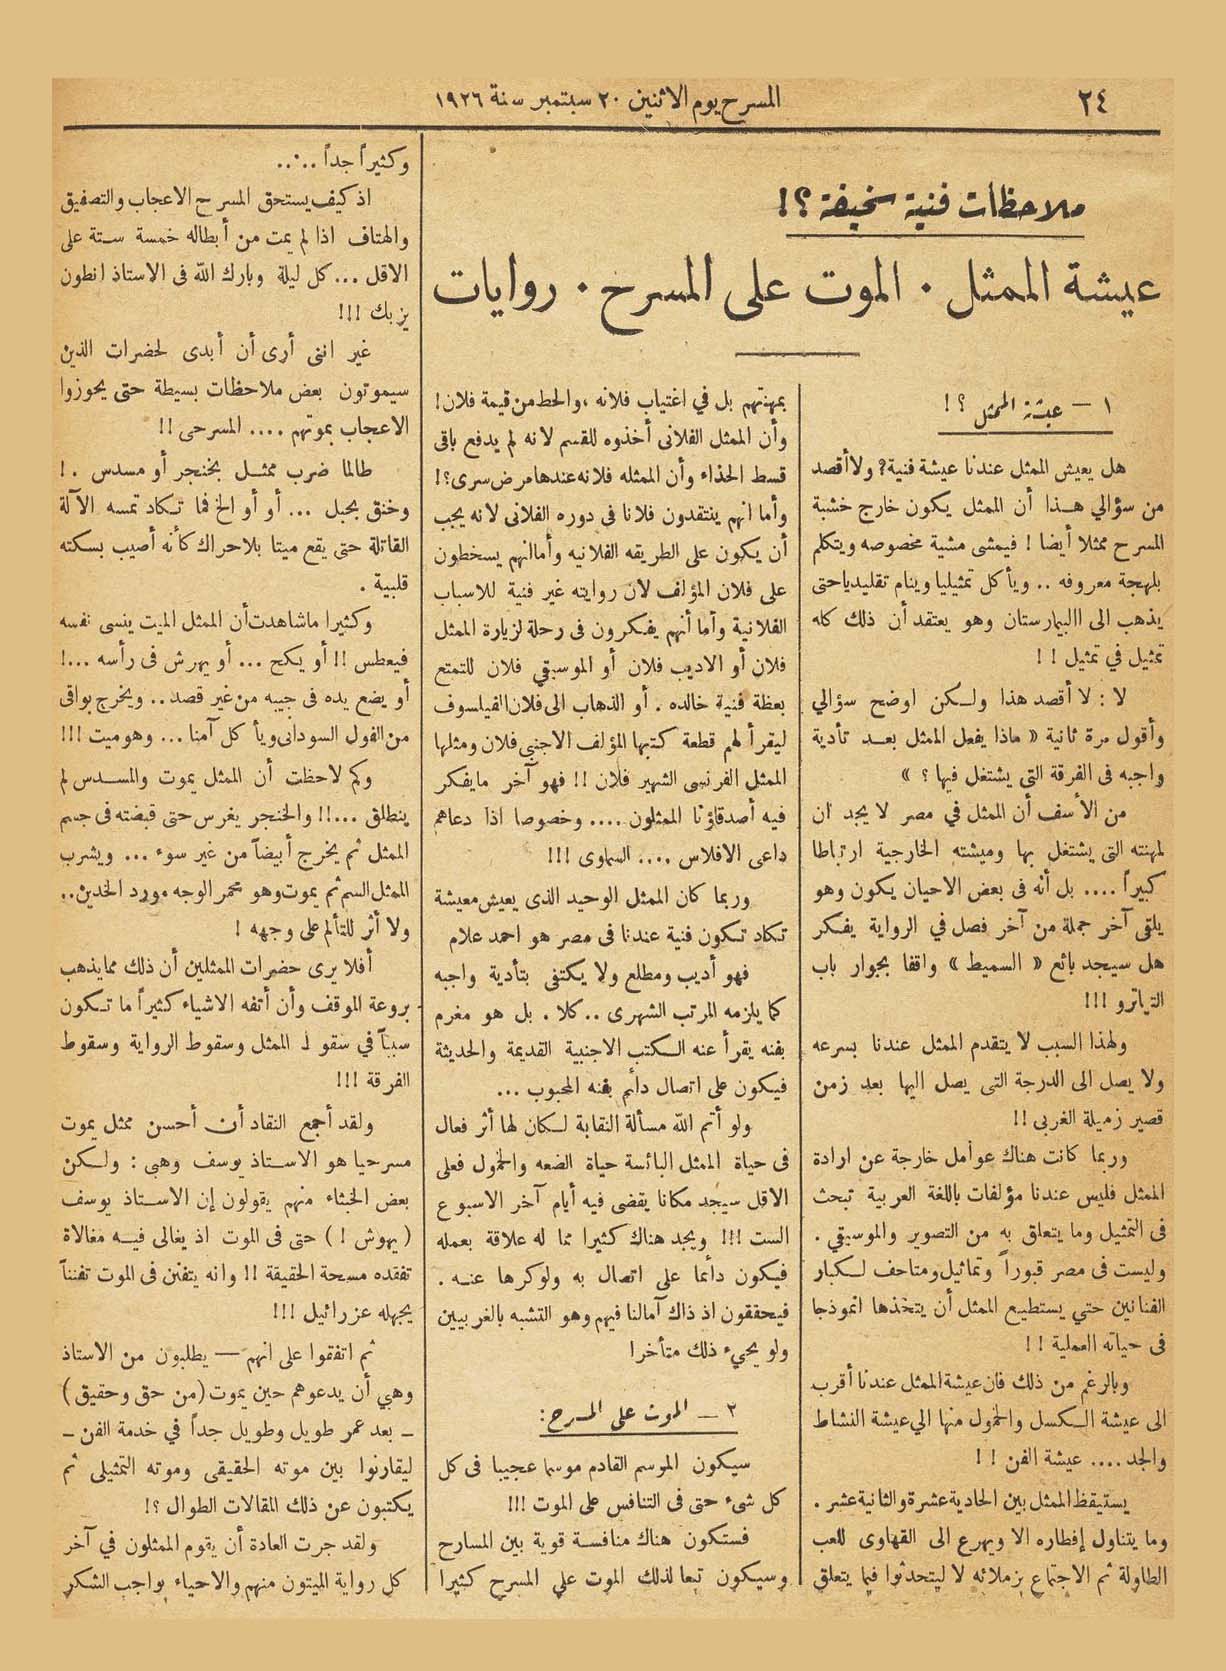 ٢٤
المسرح يوم الاثنين ٢٠ سبتمبر سنة ١٩٢٦
ملاحظات فنية سخيفة ؟!
عيشة الممثل . الموت على المسرح . روايات
١ — عيشة الممثل ؟ !
هل يعيش الممثل عندنا عيشة فنية؟ ولا أقصد
من سؤالي هـذا أن الممثل يكون خارج خشبة
المسرح ممثلا أيضا ! فيمشى مشية مخصوصه ويتكلم
بلهجة معروفه .. ويأكل تمثيليا وينام تقليديا حتى
يذهب الى االبيمارستان وهو يعتقد أن ذلك كله
تمثيل في تمثيل ! !
لا : لا أقصد هذا ولـكن اوضح سؤالي
وأقول مرة ثانية « ماذا يفعل الممثل بعـد تأدية
واجبه فى الفرقة التى يشتغل فيها ؟ »
من الأسف أن الممثل في مصر لا يجد ان
لمهنته التى يشتغل بها وميشته الخارجية ارتباطا
كبيراً .... بل أنه فى بعض الاحيان يكون وهو
يلقى آخر جملة من آخر فصل في الرواية يفـكر
هل سيجد بائع « السميط » واقفا بجوار باب
التياترو !!!
ولهذا السبب لا يتقدم الممثل عندنا بسرعه
ولا يصل الى الدرجة التى يصل اليها بعد زمن
قصير زميلة الغربى !!
وربما كانت هناك عوامل خارجة عن ارادة
الممثل فليس عندنا مؤلفات باللغة العربية تبحث
فى التمثيل وما يتعلق به من التصوير والموسيقي .
وليست فى مصر قبوراً وتماثيل ومتاحف لـكبار
الفنانين حتي يستطيع الممثل أن يتخذها انموذجا
فى حياته العملية ! !
وبالرغم من ذلك فان عيشة الممثل عندنا أقرب
الى عيشة الـكسل والخمول منها الي عيشة النشاط
والجد .... عيشة الفن ! !
يستيقظ الممثل بين الحادية عشرة والثانية عشر .
وما يتناول إفطاره الا ويهرع الى القهاوى للعب
الطاولة ثم الاجتماع بزملائه لا ليتحدثوا فيما يتعلق
بمهنتهم بل في اغتياب فلانه ، والحط من قيمة فلان !
وأن الممثل الفلانى أخذوه للقسم لانه لم يدفع باقى
قسط الحذاء وأن الممثله فلانه عندها مرض سرى؟!
وأما انهم ينتقدون فلانا في دوره الفلانى لانه يجب
أن يكون على الطريقه الفلانيه وأما انهم يسخطون
على فلان المؤلف لان روايته غير فنية للاسباب
الفلانية وأما أنهم يفـكرون فى رحلة لزيارة الممثل
فلان أو الاديب فلان أو الموسيقي فلان للتمتع
بعظة فنية خالده . أو الذهاب الى فلان الفيلسوف
ليقرأ لهم قطعة كتبها المؤلف الاجنبى فلان ومثلها
الممثل الفرنسى الشهير فلان !! فهو آخر ما يفكر
فيه أصدقاؤنا الممثلون .... وخصوصا اذا دعاهم
داعى الافلاس .... السماوى !!!
وربما كان الممثل الوحيد الذى يعيش معيشة
تـكاد تـكون فنية عندنا فى مصر هو احمد علام
فهو أديب ومطلع ولا يكتفى بتأدية واجبه
كما يلزمه المرتب الشهرى .. كلا . بل هو مغرم
بفنه يقرأ عنه الـكتب الاجنبية القديمة والحديثة
فيـكون على اتصال دائم بفنه المحبوب ...
ولو أتم الله مسألة النقابة لـكان لها أثر فعال
فى حياة الممثل البائسة حياة الضعه والخمول فعلى
الاقل سيجد مكانا يقضى فيه أيام آخر الاسبوع
الست !!! ويجد هناك كثيرا مما له علاقة بعمله
فيكون دائما على اتصال به ولو كرها عنـه .
فيحققون اذ ذاك آمالنا فيهم وهو التشبه بالغربيين
ولو يجيء ذلك متأخرا
٢ — الموت على المسرح :
سيكون الموسم القادم موسما عجيبا فى كل
كل شىء حتى فى التنافس على الموت !!!
فستكون هناك منافسـة قوية بين المسارح
وسيكون تبعا لذلك الموت علي المسرح كثيرا
وكثيراً جداً .....
اذ كيف يستحق المسرح الاعجاب والتصفيق
والهتاف اذا لم يمت من أبطاله خمسة ستة على
الاقل ... كل ليلة وبارك الله فى الاستاذ انطون
يزبك !!!
غير انى أرى أن أبدى لحضرات الذين
سيموتون بعض ملاحظات بسيطة حتى يحوزوا
الاعجاب بموتهم .... المسرحى !!
طالما ضرب ممثـل بخنجر أو مسدس . !
وخنق بحبل ... أو أو الخ فما تـكاد تمسه الآلة
القاتلة حتى يقع ميتا بلا حراك كأنه أصيب بسكته
قلبية .
وكثيرا ما شاهدت أن الممثل الميت ينسى نفسه
فيعطس !! أو يكح ... أو يهرش فى رأسه ...!
أو يضع يده فى جيبه من غير قصد .. ويخرج بواقى
من الفول السودانى ويأكل آمنا ... وهو ميت !!!
وكم لاحظت أن الممثل يموت والمسدس لم
ينطلق ...!! والخنجر يغرس حتى قبضته فى جسم
الممثل ثم يخرج أبيضاً من غير سوء ... ويشرب
الممثل السم ثم يموت وهو محمر الوجه مورد الخدين ..
ولا أثر للتألم على وجهه !
أفلا يرى حضرات الممثلين أن ذلك مما يذهب
بروعة الموقف وأن أتفه الاشياء كثيراً ما تـكون
سبباً في سقو ط الممثل وسقوط الرواية وسقوط
الفرقة !!!
ولقد أجمع النقاد أن أحسن ممثل يموت
مسرحيا هو الاستاذ يوسف وهبى : ولـكن
بعض الخبثاء منهم يقولون إن الاستاذ يوسف
( يهوش ! ) حتى فى الموت اذ يغالى فيـه مغالاة
تفقده مسحة الحقيقة !! وانه يتفنن فى الموت تفنناً
يجهله عزرائيل !!!
ثم اتفقوا على انهم — يطلبون من الاستاذ
وهبي أن يدعوهم حين يموت ( من حق وحقيق )
ــ بعد عمر طويل وطويل جداً في خدمة الفن ــ
ليقارنوا بين موته الحقيقى وموته التمثيلى ثم
يكتبون عن ذلك المقالات الطوال ؟!
ولقد جرت العادة أن يقوم الممثلون في آخر
كل رواية الميتون منهم والاحياء بواجب الشكر